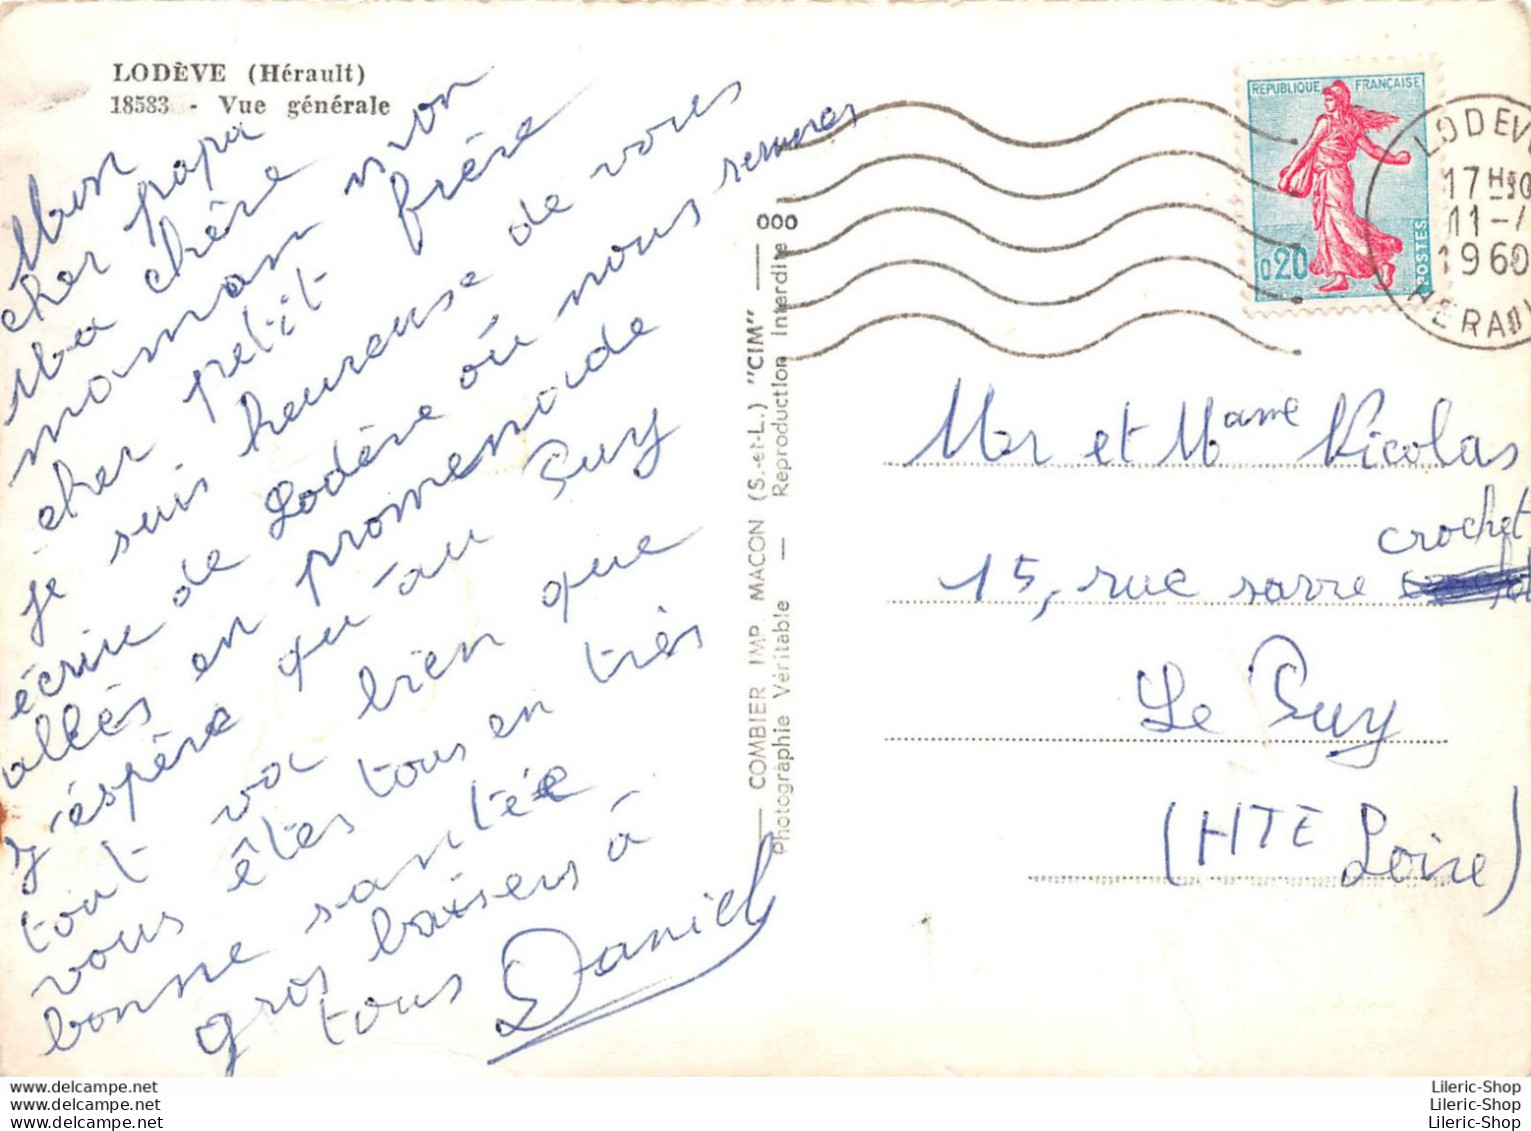 LODÈVE (Hérault)
18583 - Vue générale
Mon
cher papa
Ma chère
maman mon
cher petit frère
je suis heureuse de vous
écrire de Lodève où nous sommes
allés en promenade
J'éspère qu'au Puy
tout va bien que
vous êtes tous en très
bonne santée
gros baisers à
tous Daniel
COMBIER IMP. MACON (S.-et-L.) "CIM"
Photographie Véritable — Reproduction Interdite
000
REPUBLIQUE FRANÇAISE
0,20
POSTES
LODEVE
17 H30
11-
1960
HERAU
Mr et Mame Nicolas
crochet
15, rue
Le Puy
(HTE Loire)
delcampe.net
delcampe.net
delcampe.net
Lileric-Shop
Lileric-Shop
Lileric-Shop